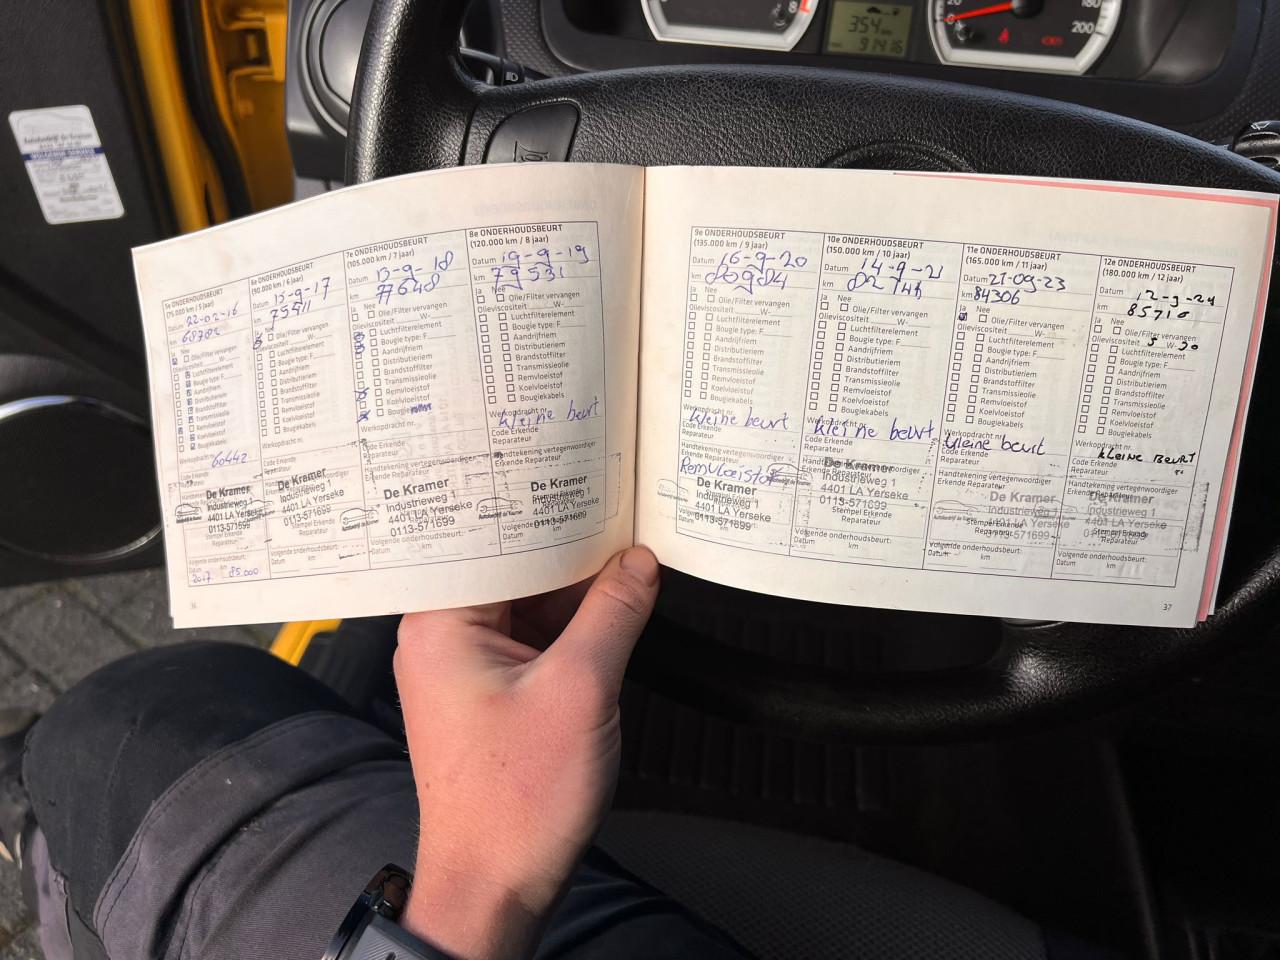 8
354
91416
20
180
200
Autobedrijf de Kramer
VOLGENDE SERVICE
5e ONDERHOUDSBEURT
(75.000 km / 5 jaar)
Datum 22-02-16
km 68702
Ja Nee
Olie/Filter vervangen
Olieviscositeit W-
Luchtfilterelement
Bougie type: F
Aandrijfriem
Distributieriem
Brandstoffilter
Transmissieolie
Remvloeistof
Koelvloeistof
Bougiekabels
Werkopdracht nr.
60442
De Kramer
Industrieweg 1
4401 LA Yerseke
0113-571699
Volgende onderhoudsbeurt:
Datum km
2017 85.000
6e ONDERHOUDSBEURT
(90.000 km / 6 jaar)
Datum 15-9-17
km 75911
Ja Nee
Olie/Filter vervangen
Olieviscositeit W-
Luchtfilterelement
Bougie type: F
Aandrijfriem
Distributieriem
Brandstoffilter
Transmissieolie
Remvloeistof
Koelvloeistof
Bougiekabels
Werkopdracht nr.
Code Erkende
Reparateur
De Kramer
Industrieweg 1
4401 LA Yerseke
0113-571699
Stempel Erkende
Reparateur
Volgende onderhoudsbeurt:
Datum km
7e ONDERHOUDSBEURT
(105.000 km / 7 jaar)
Datum 13-9-18
km 77648
Ja Nee
Olie/Filter vervangen
Olieviscositeit W-
Luchtfilterelement
Bougie type: F
Aandrijfriem
Distributieriem
Brandstoffilter
Transmissieolie
Remvloeistof
Koelvloeistof
Werkopdracht nr.
Code Erkende
Reparateur
Handtekening vertegenwoordiger
Erkende Reparateur
De Kramer
Industrieweg 1
4401 LA Yerseke
0113-571699
Volgende onderhoudsbeurt:
Datum km
8e ONDERHOUDSBEURT
(120.000 km / 8 jaar)
Datum 19-9-19
km 79531
Ja Nee
Olie/Filter vervangen
Olieviscositeit W-
Luchtfilterelement
Bougie type: F
Aandrijfriem
Distributieriem
Brandstoffilter
Transmissieolie
Remvloeistof
Koelvloeistof
Bougiekabels
Werkopdracht nr.
kleine beurt
Code Erkende
Reparateur
Handtekening vertegenwoordiger
Erkende Reparateur
De Kramer
Industrieweg 1
4401 LA Yerseke
0113-571699
Volgende onderhoudsbeurt:
Datum km
9e ONDERHOUDSBEURT
(135.000 km / 9 jaar)
Datum 16-9-20
km 80984
Ja Nee
Olie/Filter vervangen
Olieviscositeit W-
Luchtfilterelement
Bougie type: F
Aandrijfriem
Distributieriem
Brandstoffilter
Transmissieolie
Remvloeistof
Koelvloeistof
Bougiekabels
Werkopdracht nr.
kleine beurt
Code Erkende
Reparateur
Handtekening vertegenwoordiger
Erkende Reparateur
Remvloeistof
De Kramer
Industrieweg 1
4401 LA Yerseke
0113-571699
Volgende onderhoudsbeurt:
Datum km
10e ONDERHOUDSBEURT
(150.000 km / 10 jaar)
Datum 14-9-21
km
Ja Nee
Olie/Filter vervangen
Olieviscositeit W-
Luchtfilterelement
Bougie type: F
Aandrijfriem
Distributieriem
Brandstoffilter
Transmissieolie
Remvloeistof
Koelvloeistof
Bougiekabels
Werkopdracht nr.
kleine beurt
Code Erkende
Reparateur
Handtekening vertegenwoordiger
Erkende Reparateur
De Kramer
Industrieweg 1
4401 LA Yerseke
0113-571699
Stempel Erkende
Reparateur
Volgende onderhoudsbeurt:
Datum km
11e ONDERHOUDSBEURT
(165.000 km / 11 jaar)
Datum 21-09-23
km 84306
Ja Nee
Olie/Filter vervangen
Olieviscositeit W-
Luchtfilterelement
Bougie type: F
Aandrijfriem
Distributieriem
Brandstoffilter
Transmissieolie
Remvloeistof
Koelvloeistof
Bougiekabels
Werkopdracht nr.
kleine beurt
Code Erkende
Reparateur
Handtekening vertegenwoordiger
Erkende Reparateur
De Kramer
Industrieweg 1
4401 LA Yerseke
0113-571699
Stempel Erkende
Reparateur
Volgende onderhoudsbeurt:
Datum km
12e ONDERHOUDSBEURT
(180.000 km / 12 jaar)
Datum 12-9-24
km 85710
Ja Nee
Olie/Filter vervangen
Olieviscositeit 5 W- 30
Luchtfilterelement
Bougie type: F
Aandrijfriem
Distributieriem
Brandstoffilter
Transmissieolie
Remvloeistof
Koelvloeistof
Bougiekabels
Werkopdracht nr.
KLEINE BEURT
Code Erkende
Reparateur
Handtekening vertegenwoordiger
Erkende Reparateur
De Kramer
Industrieweg 1
4401 LA Yerseke
0113-571699
Stempel Erkende
Reparateur
Volgende onderhoudsbeurt:
Datum km
37